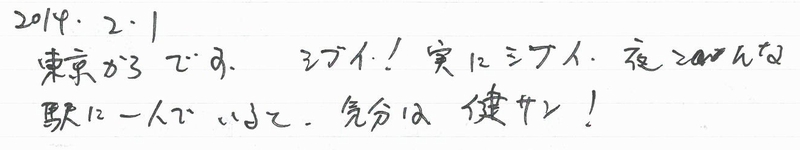 2014.2.1
東京からです。 シブイ！実にシブイ。夜こんな
駅に一人でいると、気分は 健サン！